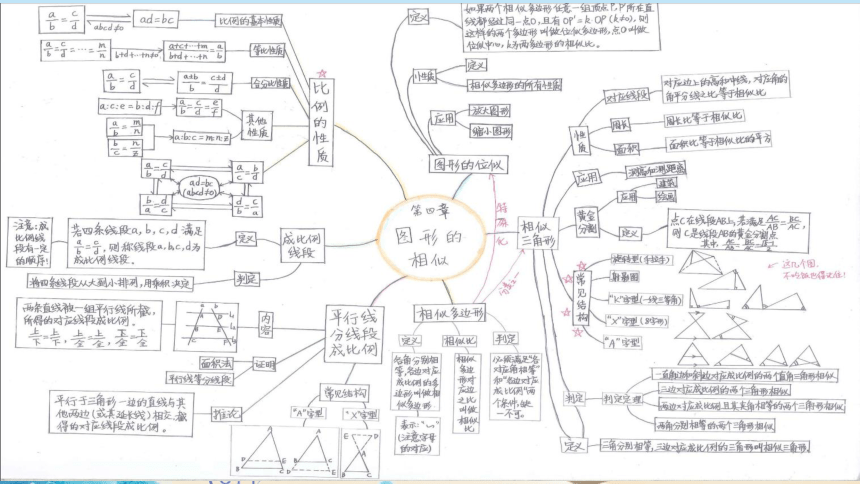 第四章
图形的
相似
比例的性质
a/b = c/d
abcd≠0
ad=bc
比例的基本性质
a/b = c/d = … = m/n
b+d+…+n≠0
a+c+…+m / b+d+…+n = a/b
等比性质
a/b = c/d
a±b/b = c±d/d
合分比性质
a:c:e=b:d:f
a/b = c/d = e/f
其他性质
a/b = m/n
b/c = n/z
a:b:c=m:n:z
ad=bc
(abcd≠0)
成比例线段
定义
若四条线段a,b,c,d 满足
a/b = c/d, 则称线段a,b,c,d为
成比例线段.
注意:成
比例线
段有一定
的顺序!
判定
将四条线段从大到小排列,用乘积决定
平行线
分线段
成比例
内容
两条直线被一组平行线所截,
所得的对应线段成比例.
上/下=上/下, 上/全=上/全, 下/全=下/全
证明
面积法
平行线等分线段
推论
平行于三角形一边的直线与其
他两边(或其延长线)相交,截
得的对应线段成比例.
常见结构
"A"字型
"X"字型
图形的位似
定义
如果两个相似多边形任意一组顶点P,P'所在直
线都经过同一点O,且有OP'=k·OP(k≠0),则
这样的两个多边形叫做位似多边形,点O叫做
位似中心,k为两多边形的相似比.
性质
定义
相似多边形的所有性质
应用
放大图形
缩小图形
特殊化
相似多边形
定义
各角分别相
等,各边对应
成比例的多
边形叫做相
似多边形
表示:"∽"
(注意字母
的对应)
相似比
相似多边形对应边之比叫做相似比
判定
必须满足"各
对应角相等"
和"各边对应
成比例"两
个条件,缺
一不可。
相似
三角形
性质
对应线段
对应边上的高和中线,对应角的
角平分线之比等于相似比
周长
周长比等于相似比
面积
面积比等于相似比的平方
应用
黄金分割
应用
建筑
绘画
定义
点C在线段AB上,若满足AC/AB=BC/AC,
则C是线段AB的黄金分割点
常见结构
旋转型(手拉手)
射影图
"K"字型(一线三等角)
"X"字型(8字形)
"A"字型
这几个图,
判定
判定定理
一直角边和斜边对应成比例的两个直角三角形相似
三边对应成比例的两个三角形相似
两边对应成比例且其夹角相等的两个三角形相似
两角分别相等的两个三角形相似
定义
三角分别相等,三边对应成比例的三角形叫相似三角形.